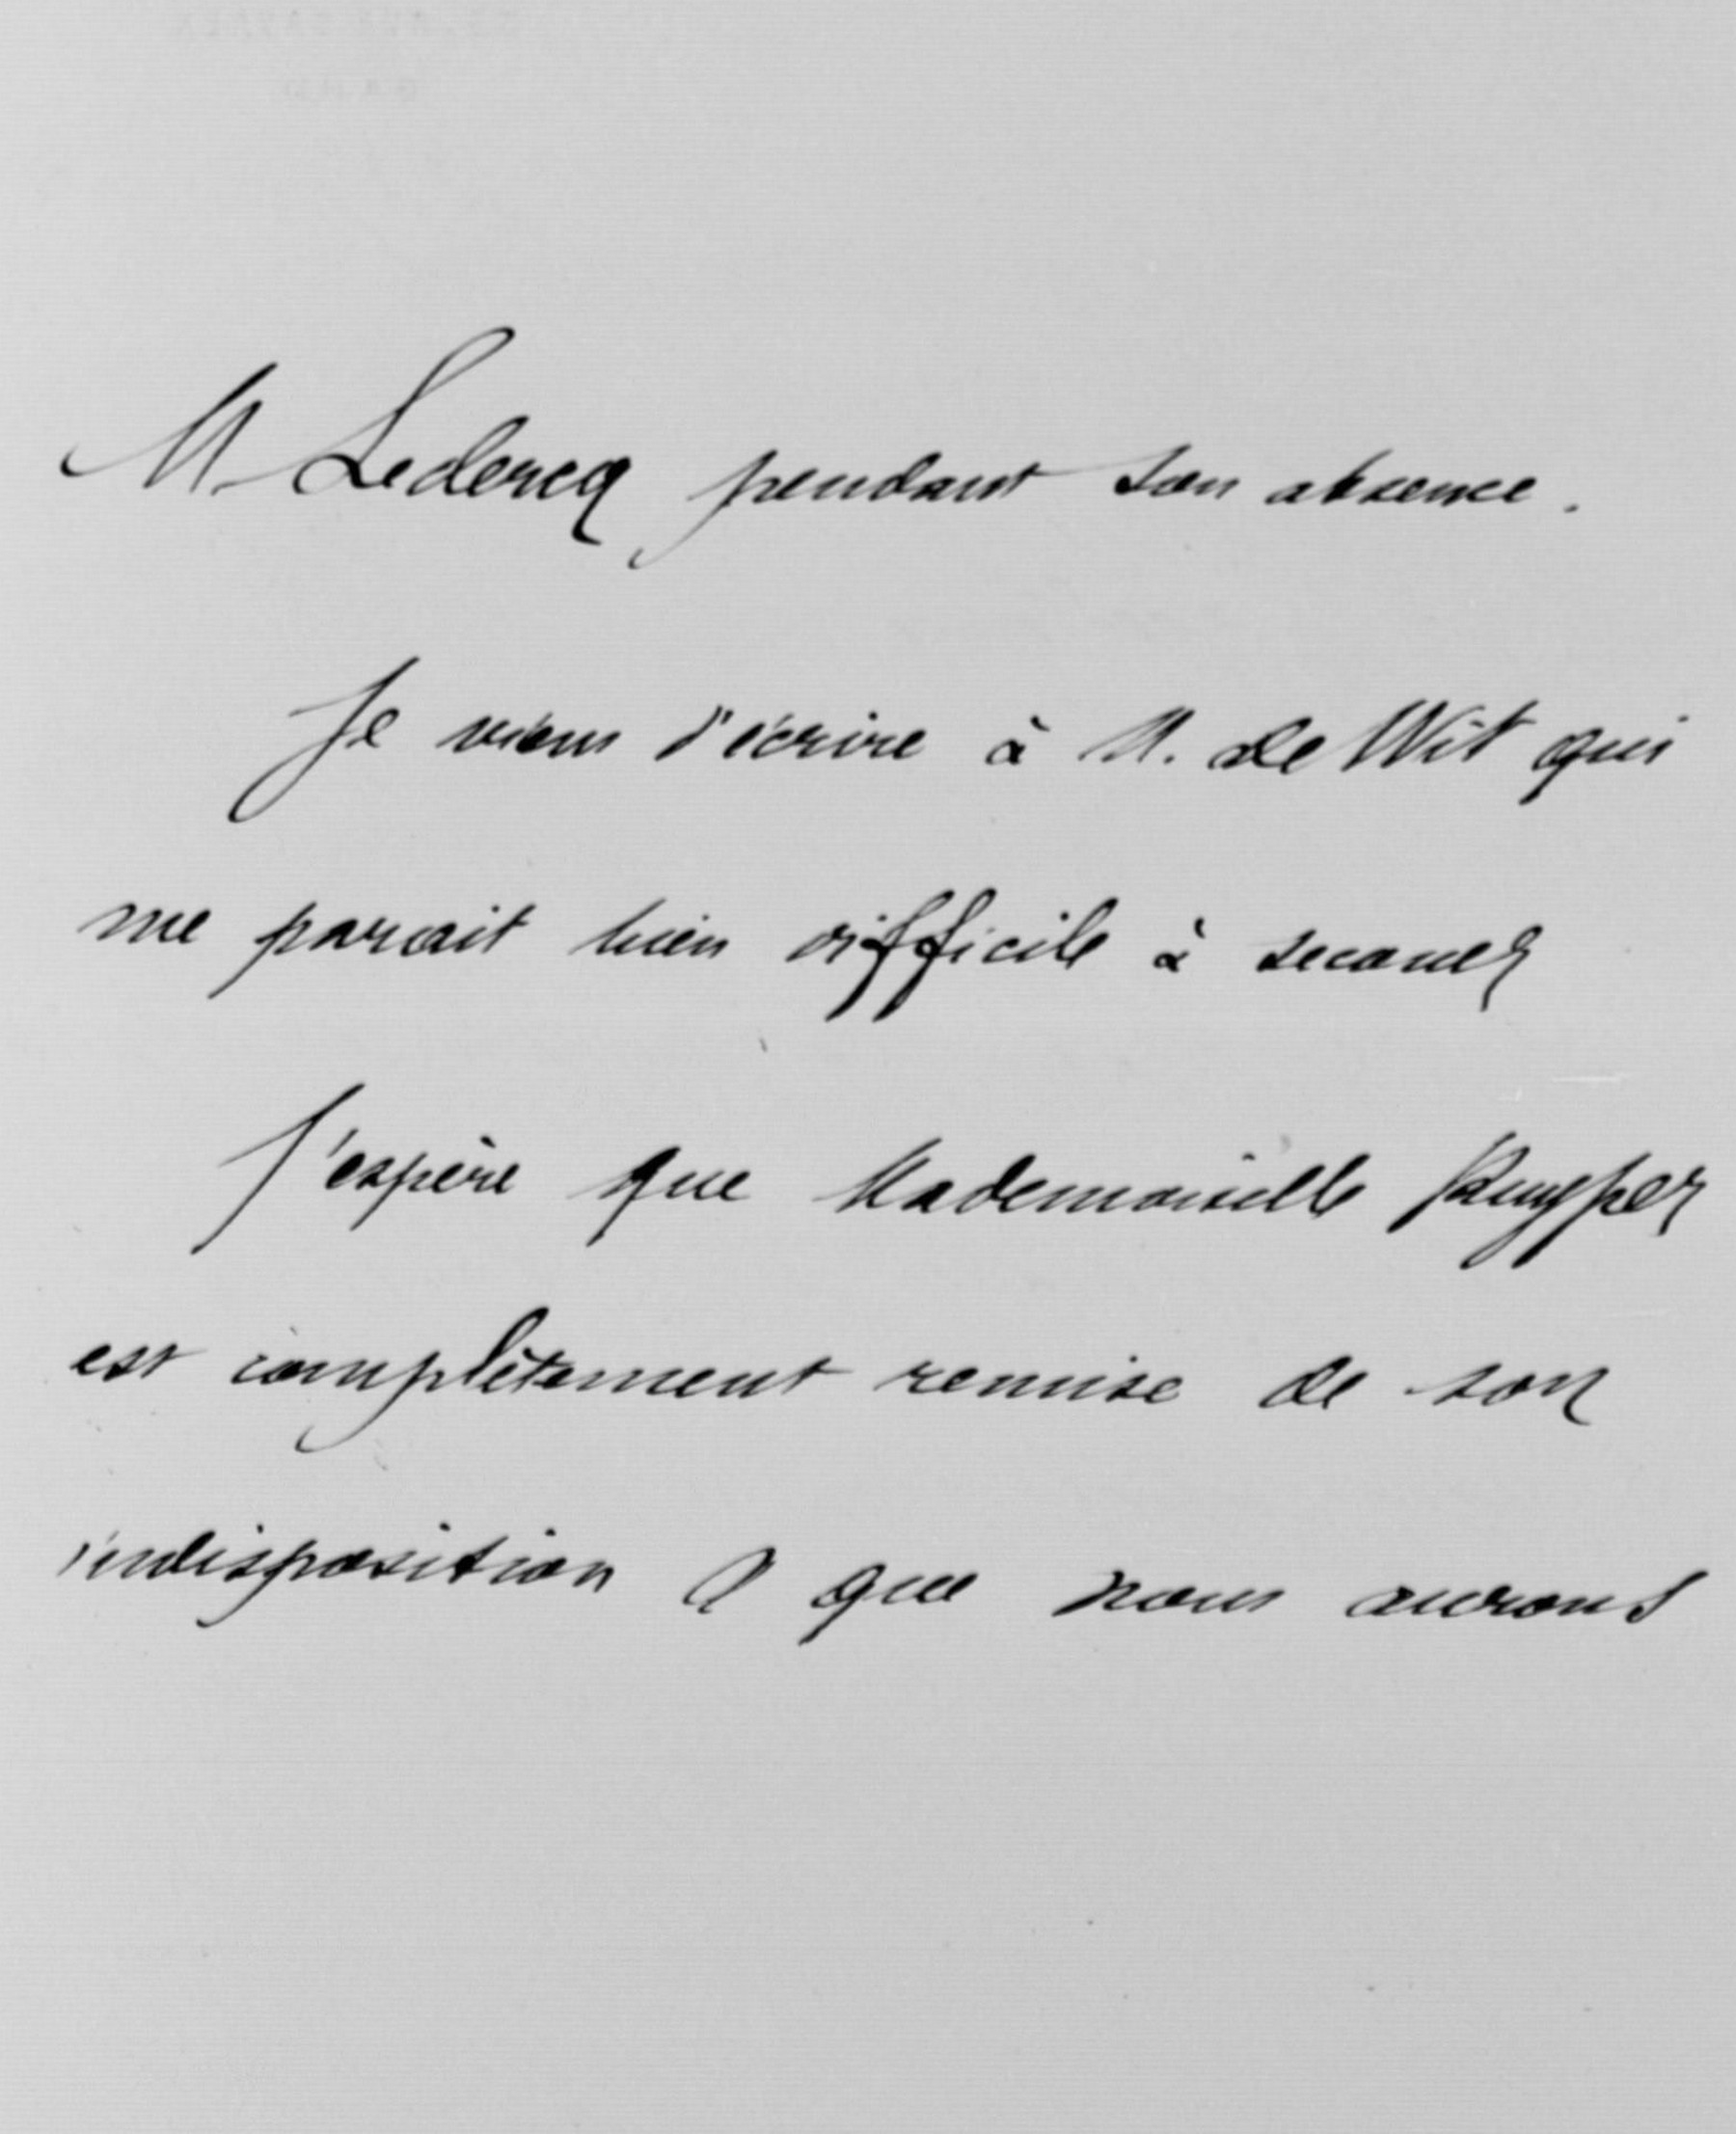 M. Leclercq pendant son absence.
Je viens d'écrire à M. de Wit qui
me parait bien difficile à secouer
J'espère que Mademoiselle Kuyper
est complètement remise de son
indisposition & que nous aurons